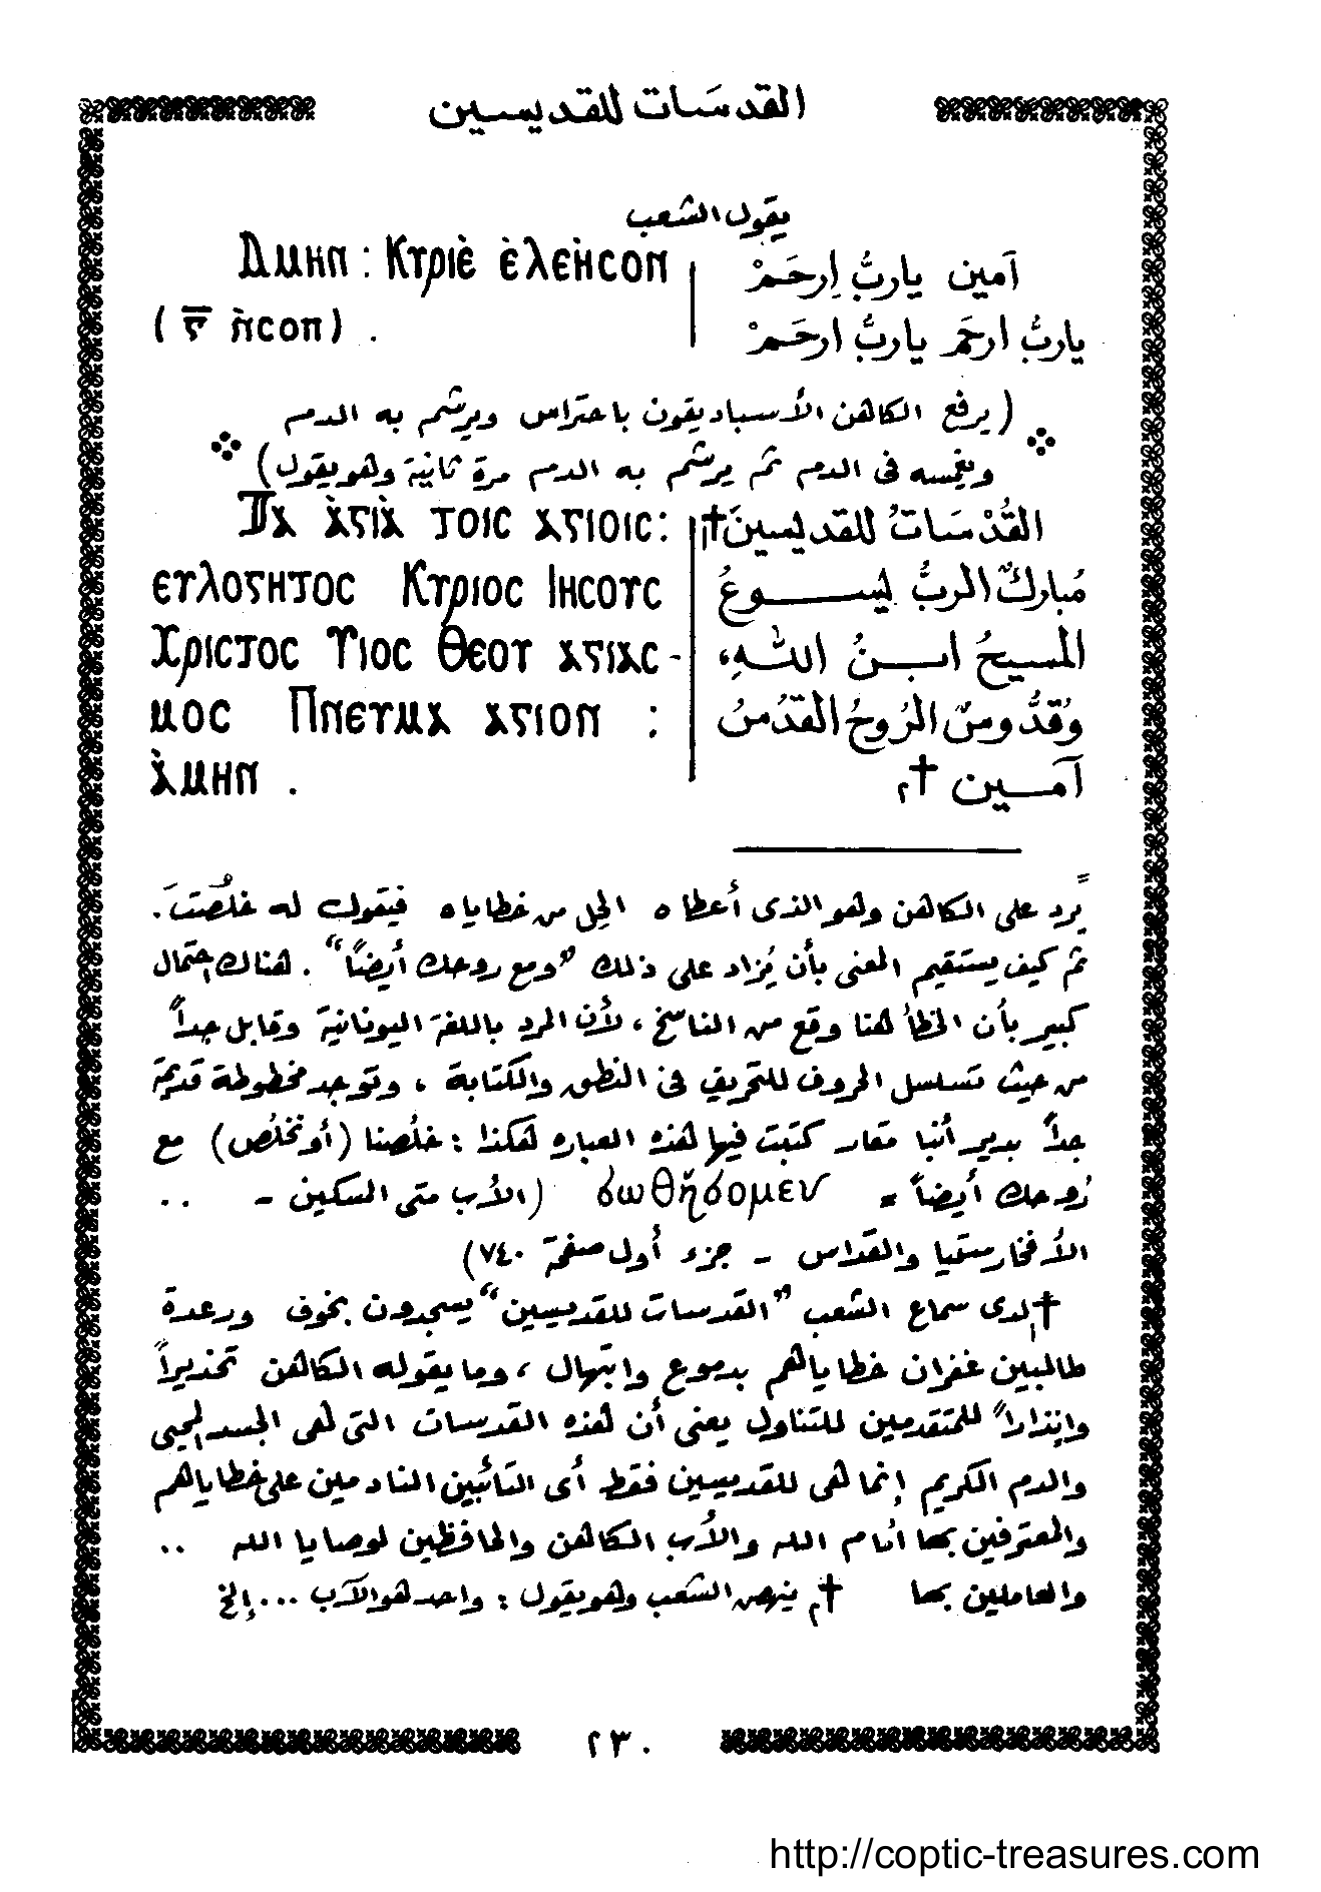 القدسات للقديسين
يقول الشعب
Ⲁⲙⲏⲛ : Ⲕⲩⲣⲓⲉ̀ ⲉ̀ⲗⲉⲏ̀ⲥⲟⲛ
آمين يا ربُّ اِرحَمْ
( ⲅ̅ ⲛ̀ⲥⲟⲡ ) .
يا ربُّ ارحَم يا ربُّ ارحَمْ
( يرفع الكاهن الأسباديقون باحتراس ويرشم به الدم
ويغمسه فى الدم ثم يرشم به الدم مرة ثانية وهو يقول )
Ⲧⲁ ⲁ̀ⲅⲓⲁ̀ ⲧⲟⲓⲥ ⲁⲅⲓⲟⲓⲥ :
القُدْسَاتُ للقديسينَ †١
ⲉⲩⲗⲟⲅⲏⲧⲟⲥ Ⲕⲩⲣⲓⲟⲥ Ⲓⲏⲥⲟⲩⲥ
مُباركٌ الربُّ يسوعُ
Ⲭⲣⲓⲥⲧⲟⲥ Ⲩⲓⲟⲥ Ⲑⲉⲟⲩ ⲁⲅⲓⲁⲥ -
المسيحُ ابنُ اللهِ،
ⲙⲟⲥ Ⲡⲛⲉⲩⲙⲁ ⲁⲅⲓⲟⲛ :
وَقُدُّوسٌ الرُوحُ القُدُسُ
ⲁ̀ⲙⲏⲛ .
آمين †٢
يَرد على الكاهن وهو الذى أعطاه الحِل من خطاياه فيقول له خلُصتَ.
ثم كيف يستقيم المعنى بأن يُزاد على ذلك "ومع روحك أيضاً" . هناك احتمال
كبير بأن الخطأ هنا وقع من الناسخ ، لأن المرد باللغة اليونانية وقابل جداً
من حيث تسلسل الحروف للتحريف فى النطق والكتابة ، وتوجد مخطوطة قديمة
جداً بدير أنبا مقار كتبت فيها هذه العباره هكذا : خلُصنا (أو نخلُص) مع
رُوحك أيضاً = σωθησομεν (الأب متى المسكين - ..
الأفخارستيا والقداس - جزء أول صفحة ٧٤٠)
†١ لدى سماع الشعب "القدسات للقديسين" يسجدون بخوف ورعدة
طالبين غفران خطاياهم بدموع وابتهال ، وما يقوله الكاهن تحذيراً
وإنذاراً للمتقدمين للتناول يعنى أن هذه القدسات التى هى الجسد المحيى
والدم الكريم إنما هى للقديسين فقط أى التائبين النادمين على خطاياهم
والمعترفين بها أمام الله والأب الكاهن والحافظين لوصايا الله ..
والعاملين بها †٢ ينهض الشعب وهو يقول : واحد هو الآب ... إلخ
٢٣٠
http://coptic-treasures.com